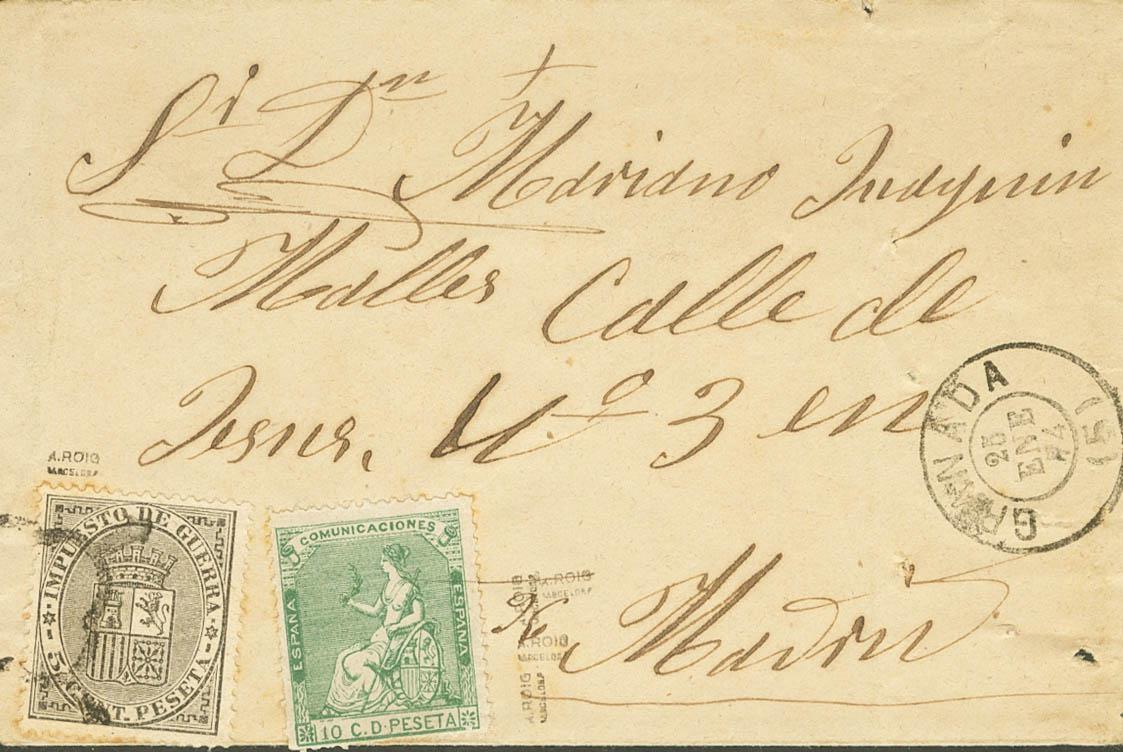 Sr Dn Mariano
Malles Calle de
Jesus, Nº 3 en
Madrid
GRANADA
25
ENE
74
(5)
A.ROIG
BARCELONA
IMPUESTO DE GUERRA
5 CENT. PESETA
COMUNICACIONES
ESPAÑA
ESPAÑA
10 C. D. PESETA
A.ROIG
A.ROIG
BARCELONA
A.ROIG
BARCELONA
A.ROIG
BARCELONA